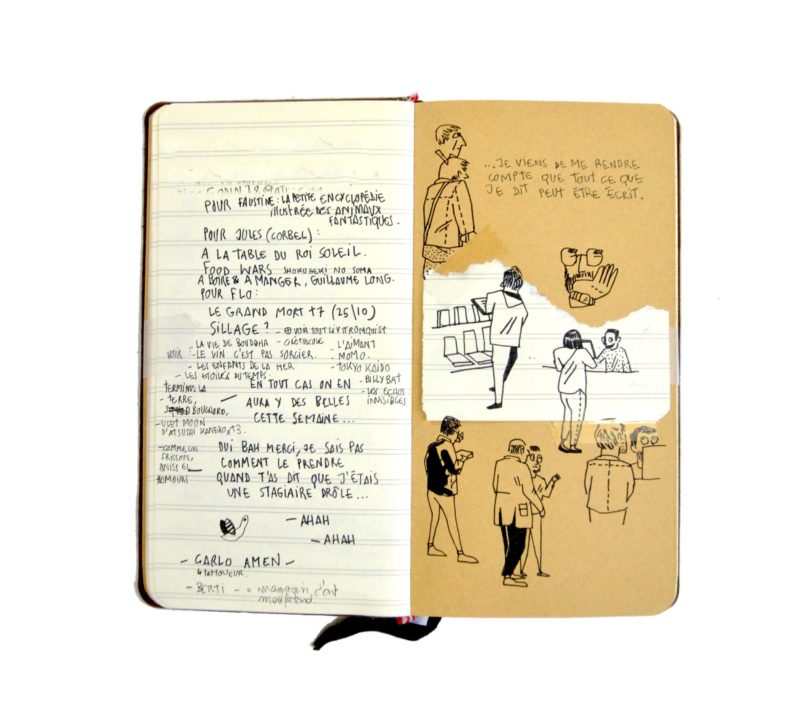 POUR FAUSTINE : LA PETITE ENCYCLOPÉDIE
ILLUSTRÉE DES ANIMAUX
FANTASTIQUES.
POUR JULES (CORBEL) :
A LA TABLE DU ROI SOLEIL.
FOOD WARS SHOKUGEKI NO SOMA
A BOIRE & A MANGER, GUILLAUME LONG.
POUR FLO :
LE GRAND MORT t7 (25/10)
SILLAGE ? - ⊕ VOIR TOUT LIV STROMQUIST
LA VIE DE BOUDDHA - L'AIMANT
VOIR : - LE VIN C'EST PAS SORCIER. - MOMO.
- LES ENFANTS DE LA MER - TOKYO KAIDO
- LES ETOILES DU TEMPS. - BILLY BAT
- LES ÉCHOS
INVISIBLES
TERMINUS LA
- TERRE,
BOUCHARD,
- WET MOON
D'ATSUSHI KANEKO x T3.
- COMME UN
FRISSON,
ANISS EL
HAMOURI
EN TOUT CAS ON EN
AURA Y DES BELLES
CETTE SEMAINE...
OUI BAH MERCI, JE SAIS PAS
COMMENT LE PRENDRE
QUAND T'AS DIT QUE J'ÉTAIS
UNE STAGIAIRE DRÔLE...
- AHAH
- AHAH
- CARLO AMEN -
↳ TATOUEUR.
- BERTI - = magasin d'art
...JE VIENS DE ME RENDRE
COMPTE QUE TOUT CE QUE
JE DIT PEUT ETRE ÉCRIT.